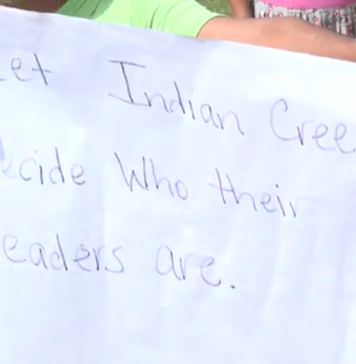 et Indian Cree
ecide Who their
eaders are.